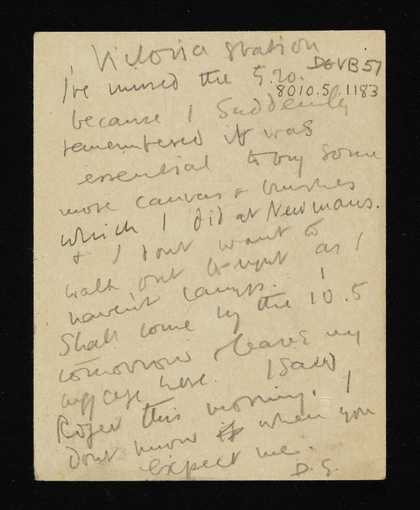 Victoria Station
I've missed the 5.20.
DGVB57
8010.5.1183
because I suddenly
remembered it was
essential to buy some
more canvas & brushes
which I did at Newmans.
& I dont want to
walk out tonight as I
haven't lamps. I
shall come by the 10.5
tomorrow & leave my
case here. I saw
Roger this morning. I
dont know when you
expect me.
D.G.